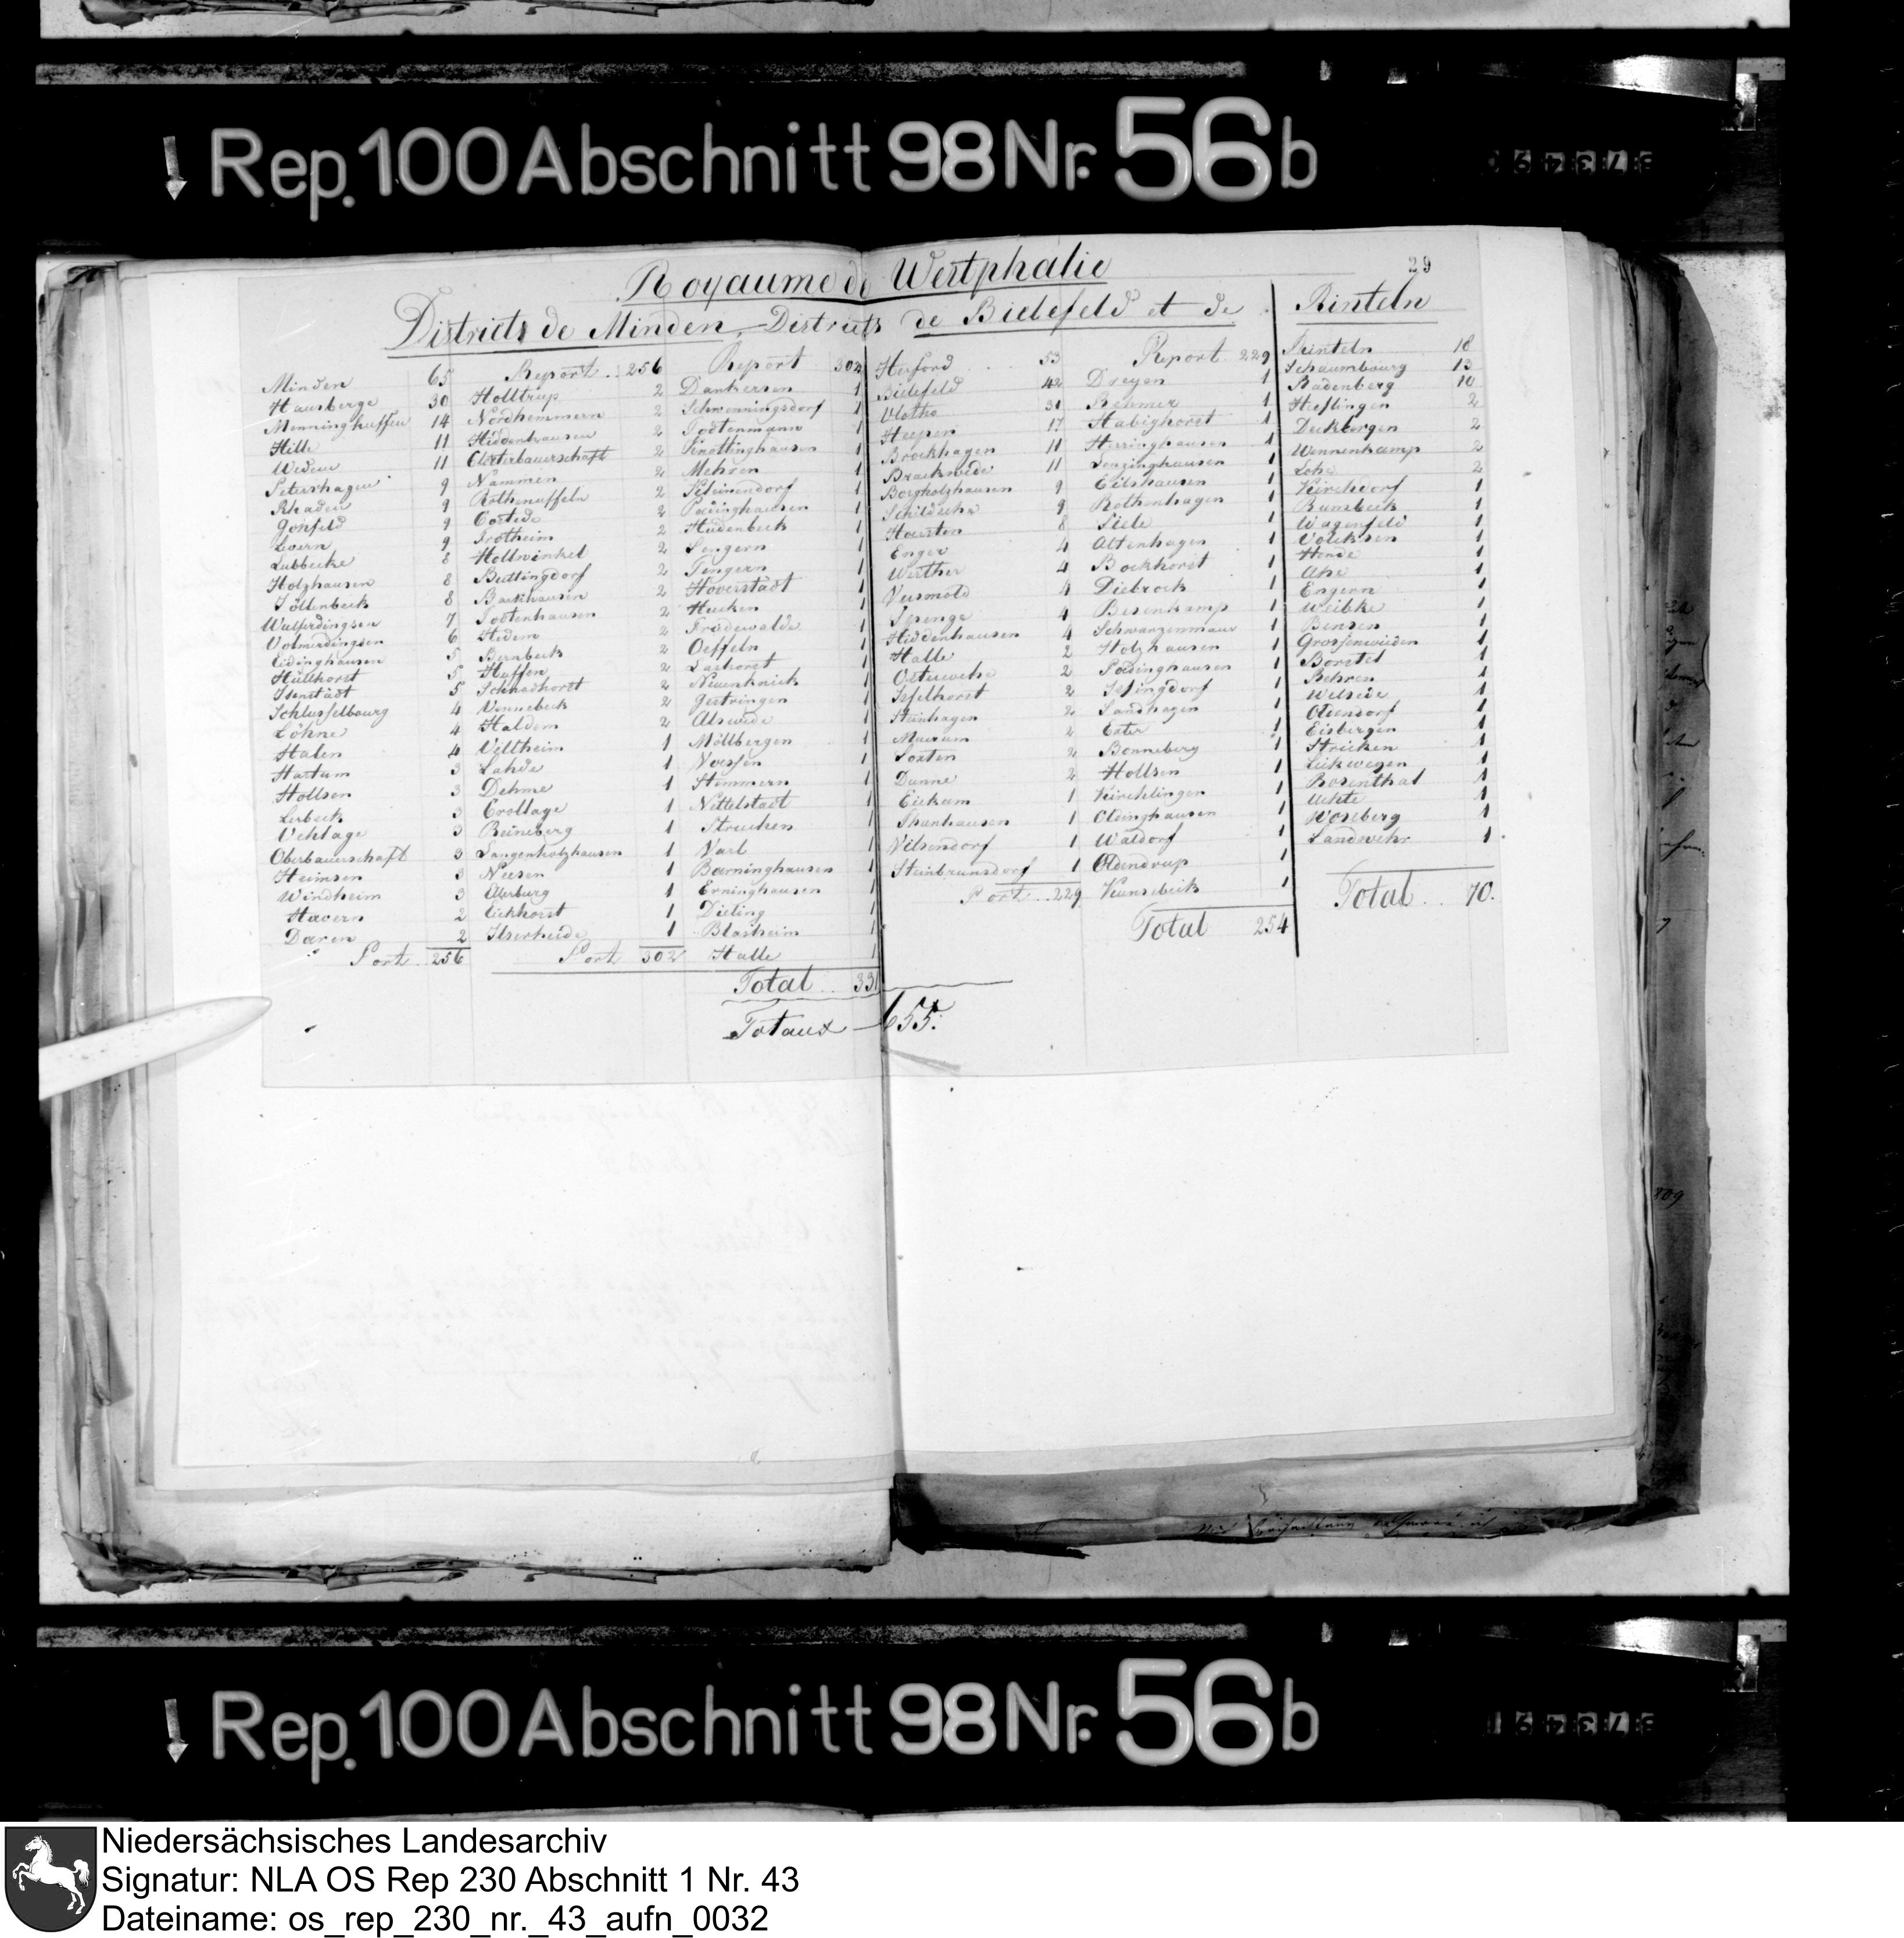 Rep. 100 Abschnitt 98 Nr. 56 b
29
Royaume de Westphalie
Districts de Minden, Districts de Bielefeld et de Rinteln
Minden 65
Hausberge 30
Menninghuffen 14
Hille 11
Wedem 11
Petershagen 9
Rhaden 9
Gohfeld 9
Levern 9
Lubbecke 8
Holzhausen 8
Jöllenbeck 8
Wulferdingsen 7
Volmerdingsen 6
Eidinghausen 5
Hüllhorst 5
Isenstädt 5
Schlusselbourg 4
Löhne 4
Halen 4
Hartum 3
Hollsen 3
Lerbeck 3
Vehlage 3
Oberbauerschaft 3
Heimsen 3
Windheim 3
Hävern 2
Dären 2
Port 256
Report 256
Holltrup 2
Nordhemmern 2
Hiddenhausen 2
Closterbauerschaft 2
Nammen 2
Rothenuffeln 2
Costede 2
Frotheim 2
Hollwinkel 2
Buttingdorf 2
Barkhausen 2
Todtenhausen 2
Hedem 2
Bernbeck 2
Huffen 2
Schnadhorst 2
Vennebeck 2
Haldem 2
Veltheim 1
Lahde 1
Dehme 1
Crollage 1
Reineberg 1
Langenholzhausen 1
Neesen 1
Ellerburg 1
Eickhorst 1
Ilserheide 1
Port 302
Report 302
Dankersen 1
Schwenningsdorf 1
Todtenmann 1
Knollinghausen 1
Mehnen 1
Kleinendorf 1
Pödinghausen 1
Hudenbeck 1
Sengern 1
Tengern 1
Hoverstädt 1
Hucken 1
Fredewalde 1
Oeffeln 1
Lashorst 1
Neuenknick 1
Gestringen 1
Alswede 1
Möllbergen 1
Voessen 1
Stemmern 1
Nettelstadt 1
Struchen 1
Varl 1
Börninghausen 1
Erninghausen 1
Dieling 1
Blasheim 1
Halle 1
Total 331
Totaux 655.
Herford 53
Bielefeld 42
Vlotho 31
Heepen 17
Brockhagen 11
Brackwede 11
Borgholzhausen 9
Schildsche 9
Haversten 8
Enger 4
Werther 4
Versmold 4
Spenge 4
Hiddenhausen 4
Halle 2
Osterwehe 2
Isselhorst 2
Steinhagen 2
Muxum 2
Loxten 2
Dunne 2
Eickum 1
Thenhausen 1
Vilsendorf 1
Steinbrunsdorf 1
Port 229
Report 229
Dreyen 1
Rehmer 1
Habighorst 1
Herringhausen 1
Lenzinghausen 1
Eilshausen 1
Rothenhagen 1
Siele 1
Altenhagen 1
Bockhorst 1
Diebrock 1
Besenkamp 1
Schwarzenmaur 1
Holzhausen 1
Pödinghausen 1
Issingdorf 1
Sandhagen 1
Exter 1
Bonneberg 1
Hollsen 1
Kirchlingen 1
Oldinghausen 1
Waldorf 1
Oldendrup 1
Kunsebeck 1
Total 254
Rinteln 18
Schaumbourg 13
Rodenberg 10
Hesslingen 2
Deckbergen 2
Wennenkamp 2
Lohe 2
Kirchdorf 1
Rumbeck 1
Wagenfeld 1
Volcksen 1
Hende 1
Ahe 1
Engern 1
Weibke 1
Bensen 1
Grossenwieden 1
Borstel 1
Behren 1
Welsede 1
Oldendorf 1
Eisbergen 1
Strücken 1
Leckwegen 1
Rosenthal 1
Uchte 1
Woesberg 1
Landwehr 1
Total 70.
Rep. 100 Abschnitt 98 Nr. 56 b
Niedersächsisches Landesarchiv
Signatur: NLA OS Rep 230 Abschnitt 1 Nr. 43
Dateiname: os_rep_230_nr._43_aufn_0032